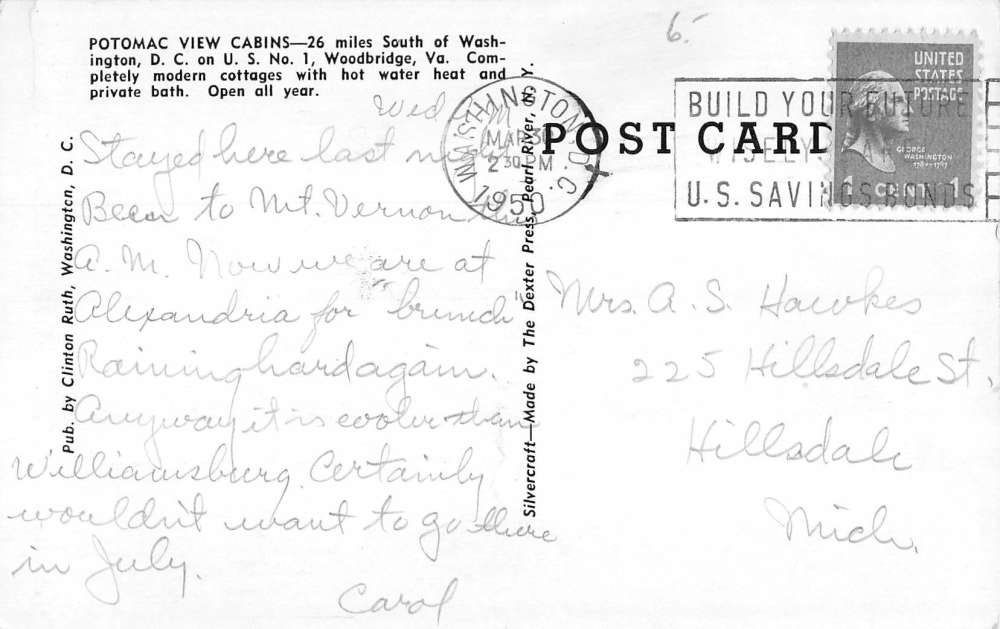 POTOMAC VIEW CABINS—26 miles South of Wash-
ington, D. C. on U. S. No. 1, Woodbridge, Va. Com-
pletely modern cottages with hot water heat and
private bath. Open all year.
6.
Wed
Stayed here last
Been to Mt. Vernon this
A. M. Now we are at
Alexandria for "brunch"
Raining hard again.
Anyway it is cooler than
Williamsburg. Certainly
wouldn't want to go there
in July.
Carol
Pub. by Clinton Ruth, Washington, D. C.
Silvercraft—Made by The Dexter Press, Pearl River, N. Y.
WASHINGTON, D.C.
MAR
2 30 PM
1950
POST CARD
BUILD YOUR FUTURE
WISELY
U.S. SAVINGS BONDS
UNITED
STATES
POSTAGE
GEORGE
WASHINGTON
1789-1797
1 CENT 1
Mrs. A. S. Hawkes
225 Hillsdale St.
Hillsdale
Mich.